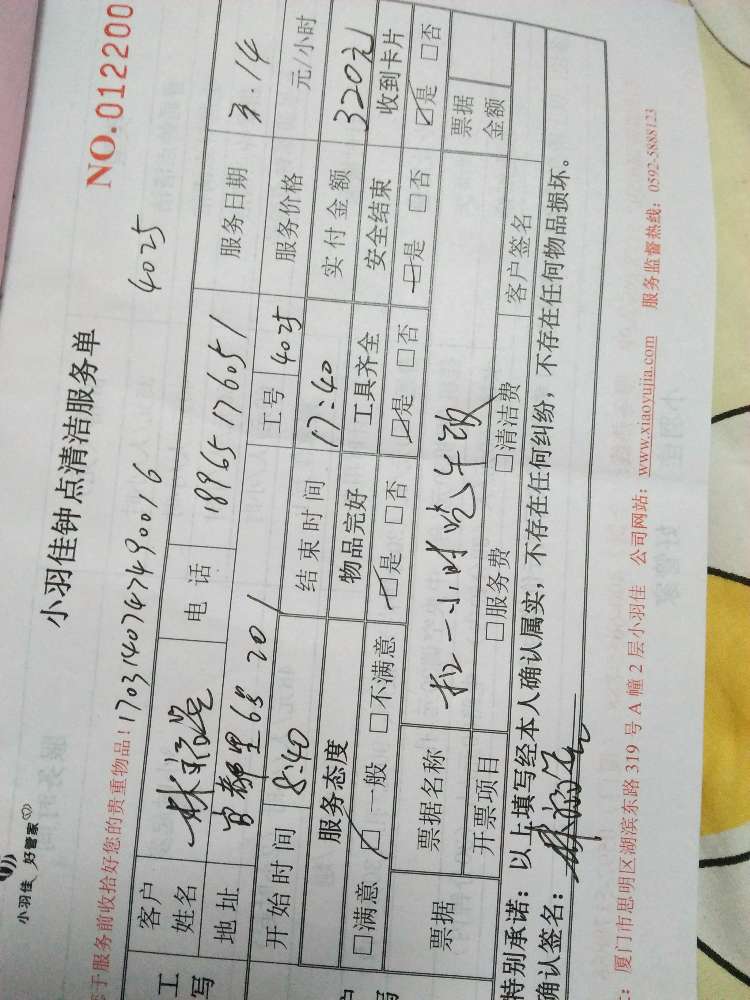 小羽佳 好管家
小羽佳钟点清洁服务单
NO.012200
于服务前收拾好您的贵重物品！1703140747490016 4025
工
写
客户姓名 电话 18965176051 服务日期 3.14
地址 65 201 工号 4025 服务价格 元/小时
开始时间 8:40 结束时间 17:40 实付金额 320元
服务态度 物品完好 工具齐全 安全结束 收到卡片
□满意 □一般 □不满意 □是 □否 □是 □否 □是 □否 □是 □否
票据 票据名称 扣一小时吃午饭 票据金额
开票项目 □服务费 □清洁费 客户签名
特别承诺：以上填写经本人确认属实，不存在任何纠纷，不存在任何物品损坏。
确认签名：
：厦门市思明区湖滨东路 319 号 A 幢 2 层小羽佳 公司网站：www.xiaoyujia.com 服务监督热线：0592-5888123